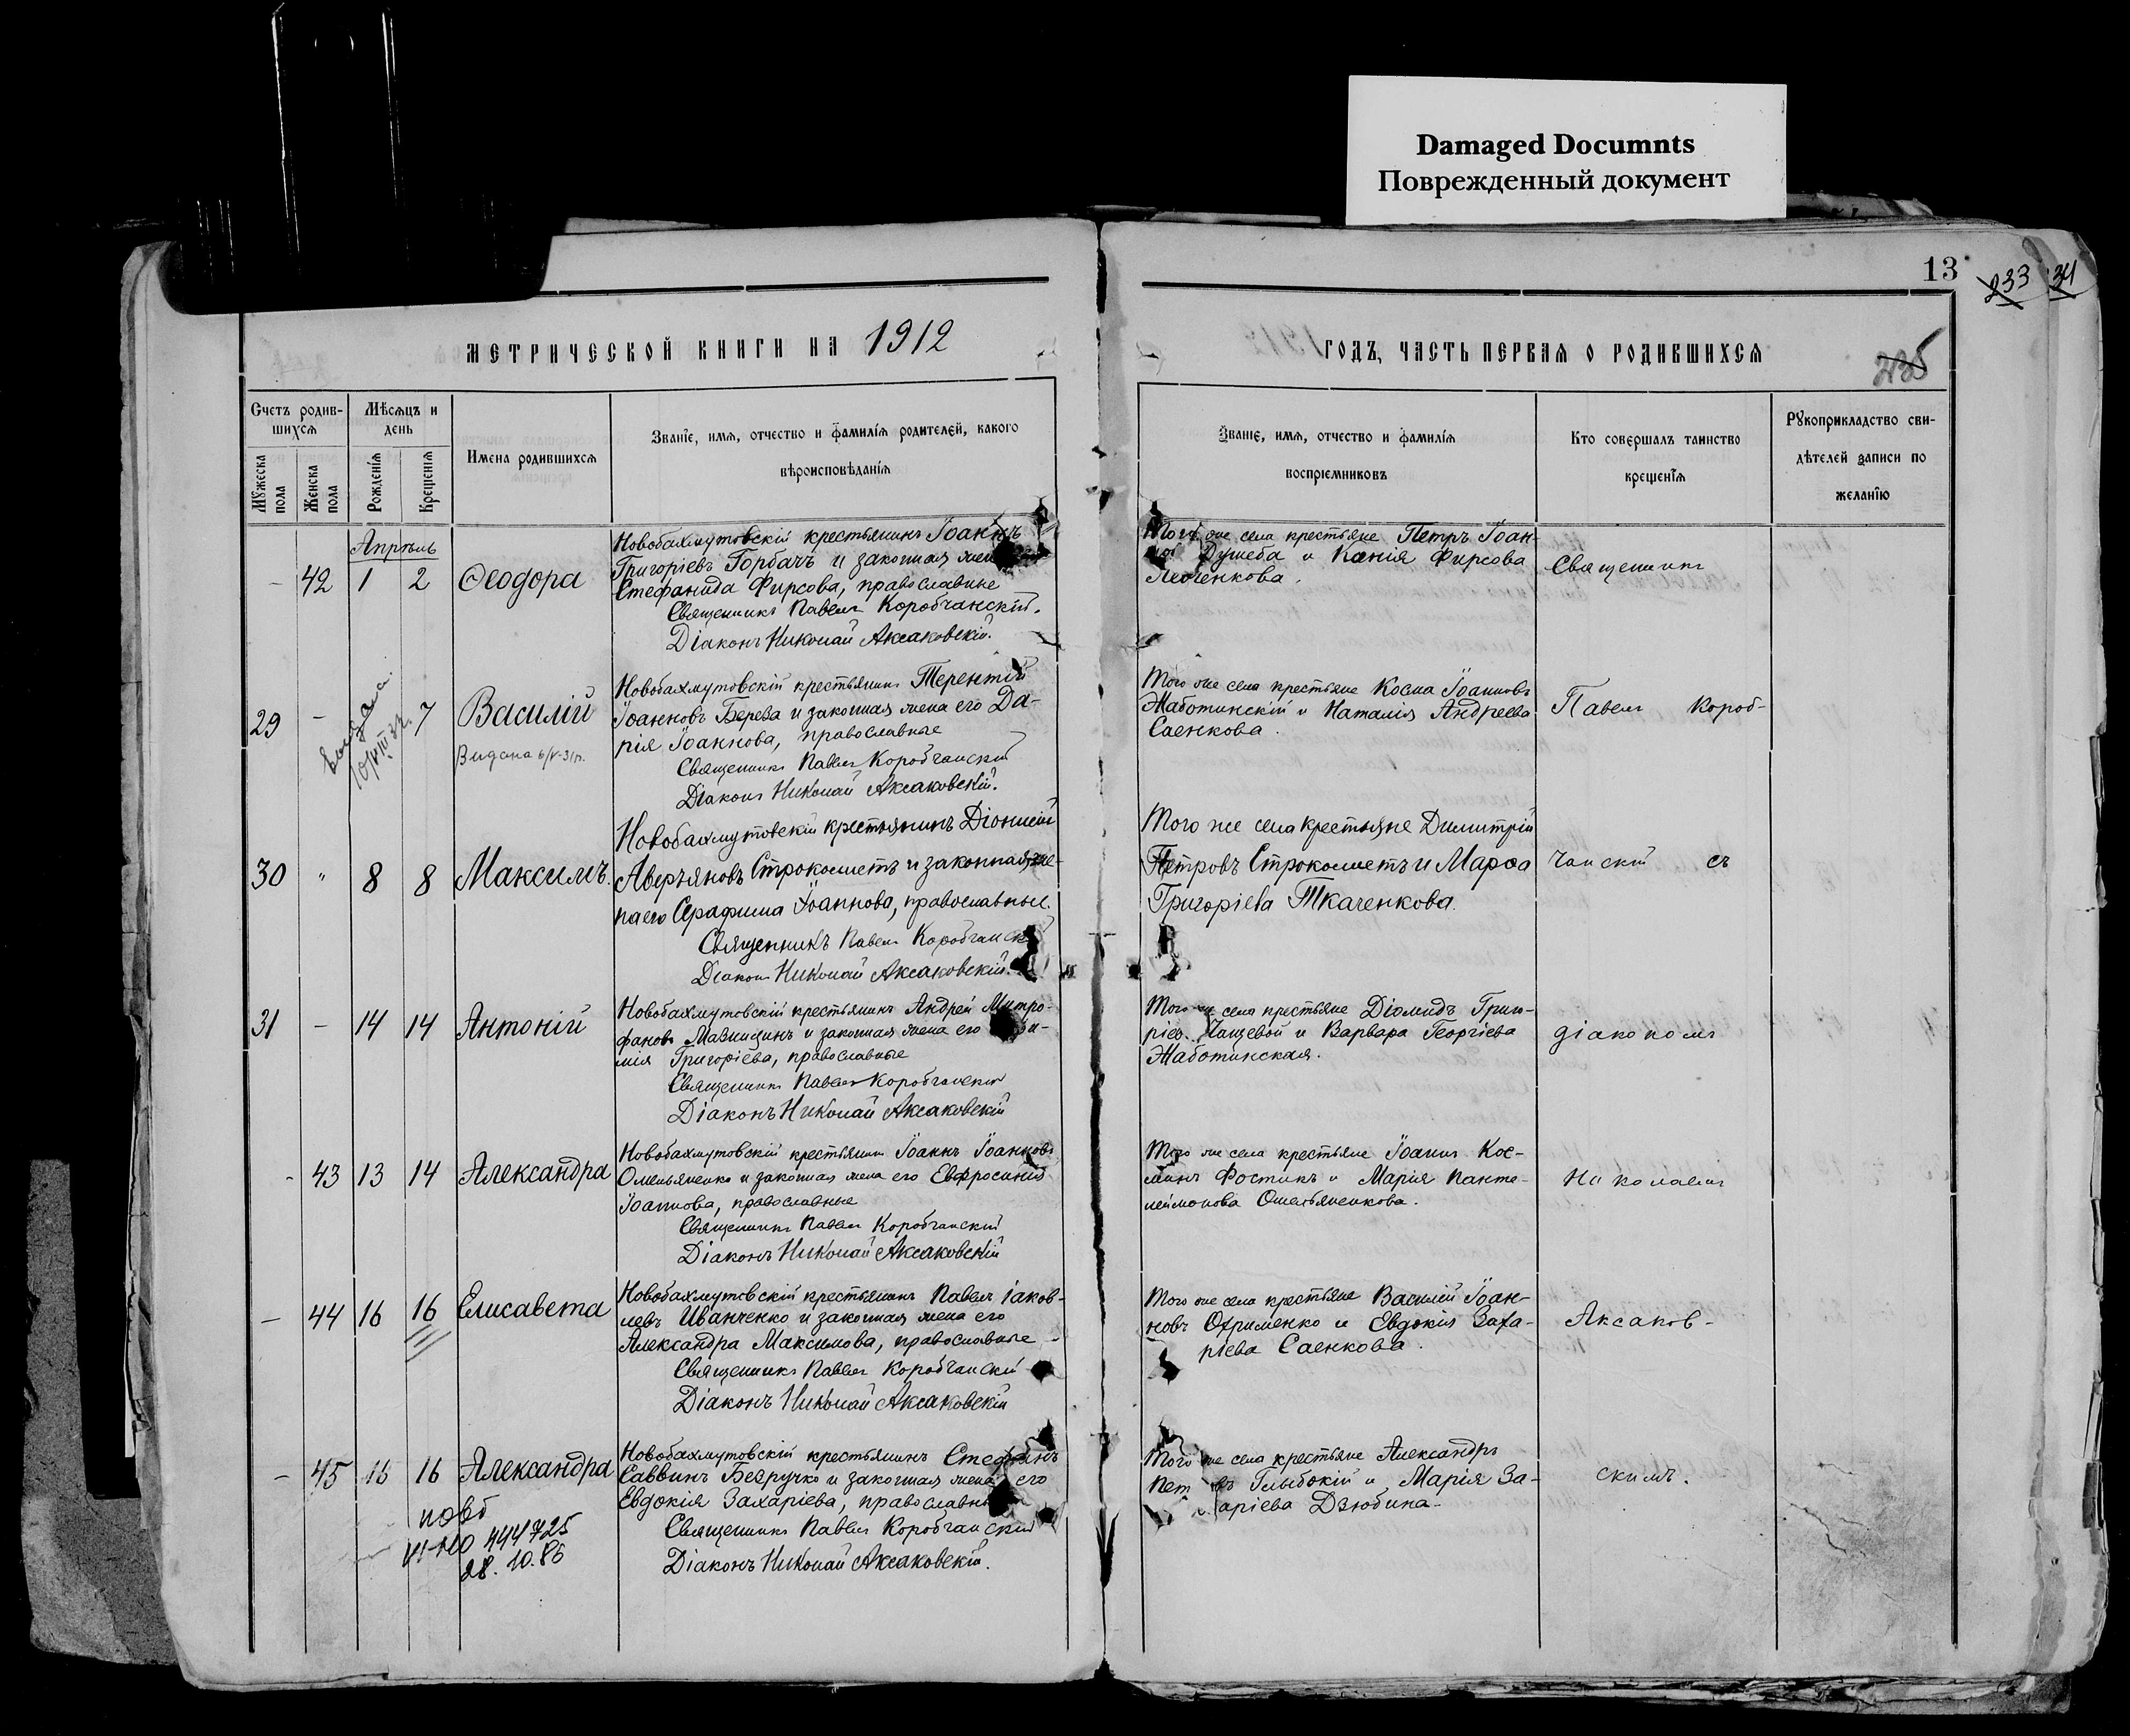 Damaged Documnts
Поврежденный документ
13
233 34
МЕТРИЧЕСКОЙ КНИГИ НА 1912
ГОДЪ, ЧАСТЬ ПЕРВАЯ О РОДИВШИХСЯ
235
Счетъ родив-
шихся
Мужеска пола
Женска пола
Мѣсяцъ и
день
Рожденія
Крещенія
Имена родившихся
Званіе, имя, отчество и фамилія родителей, какого
вѣроисповѣданія
Званіе, имя, отчество и фамилія
воспріемниковъ
Кто совершалъ таинство
крещенія
Рукоприкладство сви-
дѣтелей записи по
желанію
Апрѣль
- 42 1 2 Ѳеодора
Новобахмутовскій крестьянинъ Іоаннъ
Григоріевъ Горбачъ и законная
Стефанида Фирсова, православные
Священникъ Павелъ Коробчанскій.
Діаконъ Николай Аксаковскій.
Того же села крестьяне Петръ Іоан-
Душеба и Ксенія Фирсова
Священникъ
29 - 7 Василій
выдана
Видана 6/V-31 г.
Новобахмутовскій крестьянинъ Терентій
Іоанновъ Берева и законная жена его Да-
рія Іоаннова, православные
Священникъ Павелъ Коробчанскій
Діаконъ Николай Аксаковскій.
Того же села крестьяне Косма Іоанновъ
Жаботинскій и Наталія Андреева
Саенкова.
Павелъ Короб-
30 " 8 8 Максимъ
Новобахмутовскій крестьянинъ Діонисій
Аверьяновъ Строкометъ и законная же-
на его Серафима Іоаннова, православные
Священникъ Павелъ Коробчанскій
Діаконъ Николай Аксаковскій.
Того же села крестьяне Димитрій
Петровъ Строкометъ и Марѳа
Григоріева Ткаченкова.
чанскій съ
31 - 14 14 Антоній
Новобахмутовскій крестьянинъ Андрей Митро-
фановъ и законная жена его
мія Григоріева, православные
Священникъ Павелъ Коробчанскій
Діаконъ Николай Аксаковскій
Того же села крестьяне Діомидъ Григо-
ріев. и Варвара Георгіева
Жаботинская.
діакономъ
- 43 13 14 Александра
Новобахмутовскій крестьянинъ Іоаннъ Іоанновъ
Омельяненко и законная жена его Евфросинія
Іоаннова, православные
Священникъ Павелъ Коробчанскій
Діаконъ Николай Аксаковскій
Того же села крестьяне Іоаннъ Кос-
минъ Фостикъ и Марія Панте-
леймонова Омельяненкова.
Николаемъ
- 44 16 16 Елисавета
Новобахмутовскій крестьянинъ Павелъ Іаков-
левъ Иванченко и законная жена его
Александра Максимова, православные
Священникъ Павелъ Коробчанскій
Діаконъ Николай Аксаковскій
Того же села крестьяне Василій Іоан-
новъ Охрименко и Евдокія Заха-
ріева Саенкова.
Аксаков-
- 45 16 16 Александра
повт
444725
28.10.86
Новобахмутовскій крестьянинъ Стефанъ
Саввинъ Безручко и законная жена его
Евдокія Захаріева, православны
Священникъ Павелъ Коробчанскій
Діаконъ Николай Аксаковскій.
Того же села крестьяне Александръ
Пет въ Глыбокій и Марія За-
аріева Дзюбина.
скимъ.